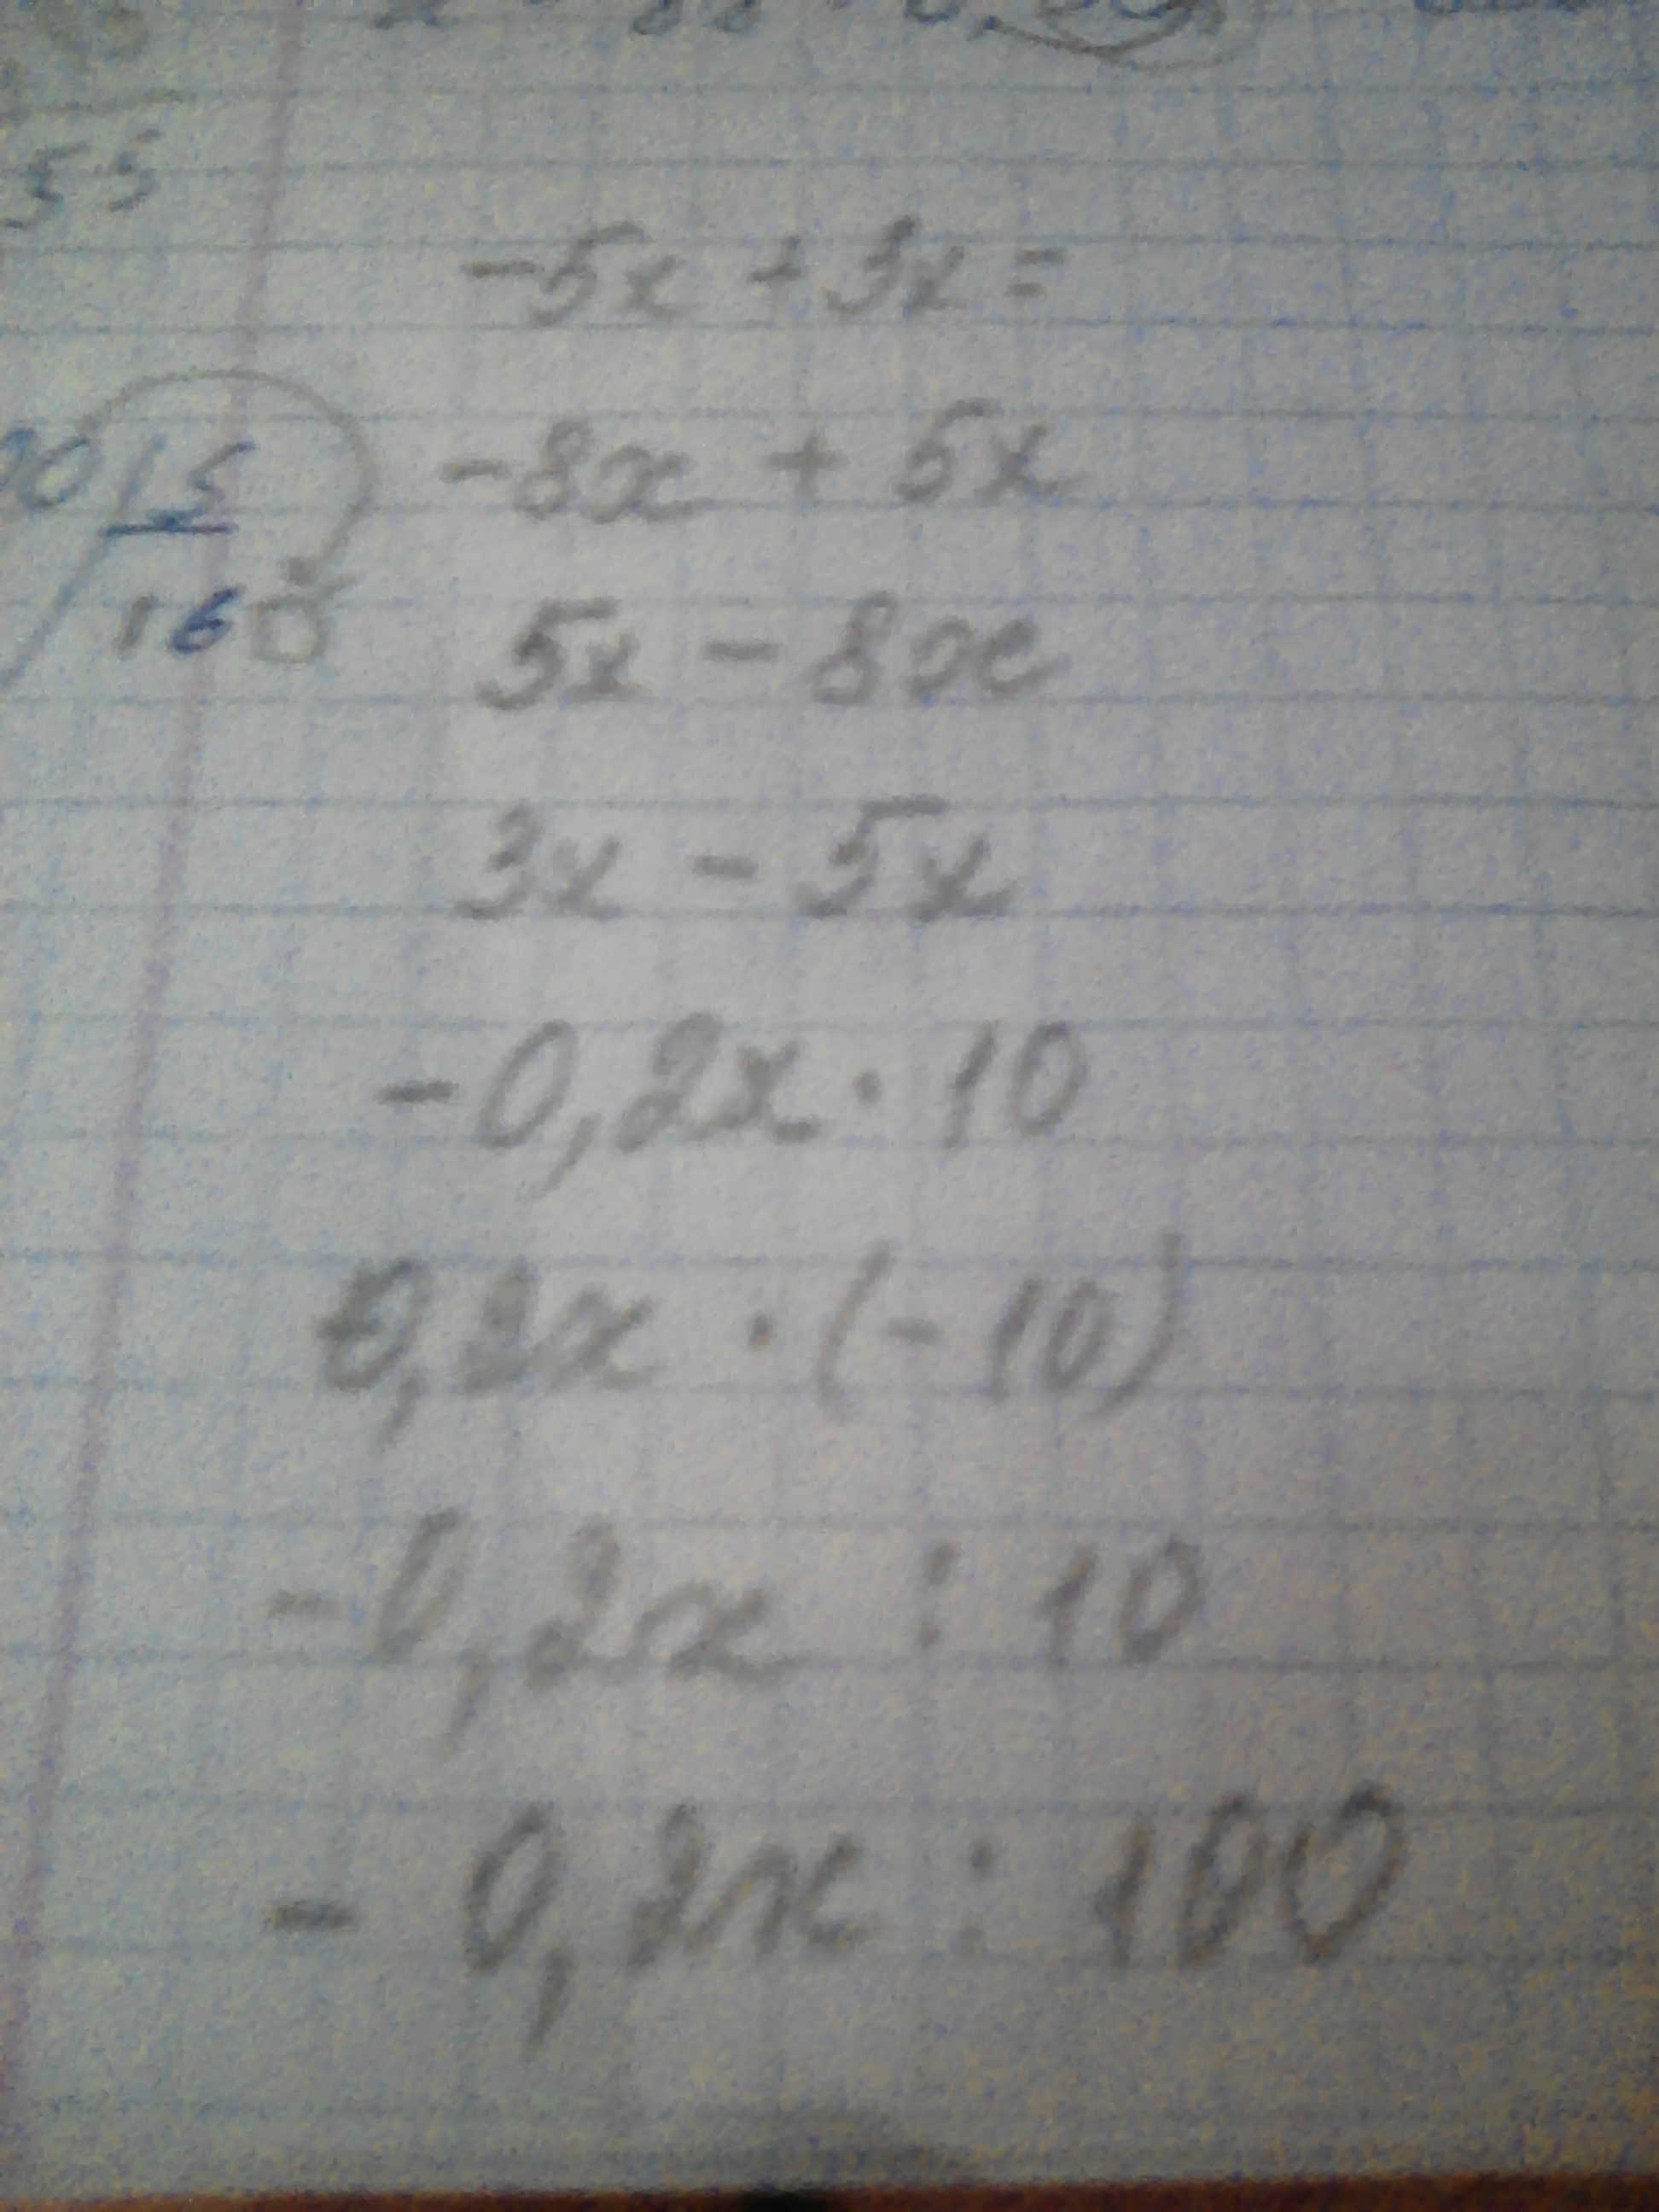 55
-5x + 3x =
00 | 5
-8x + 5x
160
5x - 8x
3x - 5x
-0,2x · 10
0,2x · (-10)
-0,2x : 10
- 0,2x : 100